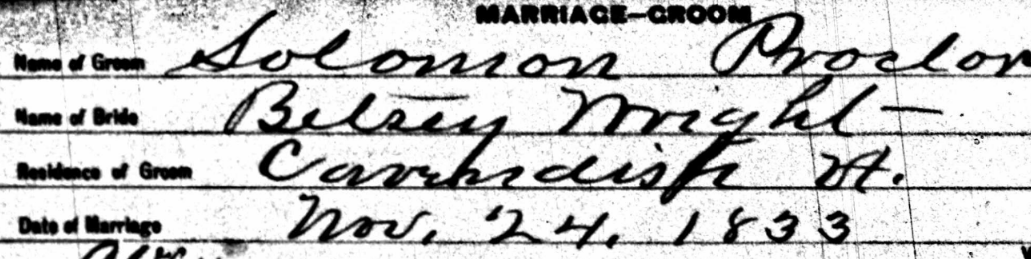 MARRIAGE—GROOM
Name of Groom Solomon Proctor
Name of Bride Betsey Wright
Residence of Groom Cavendish Vt.
Date of Marriage Nov. 24, 1833